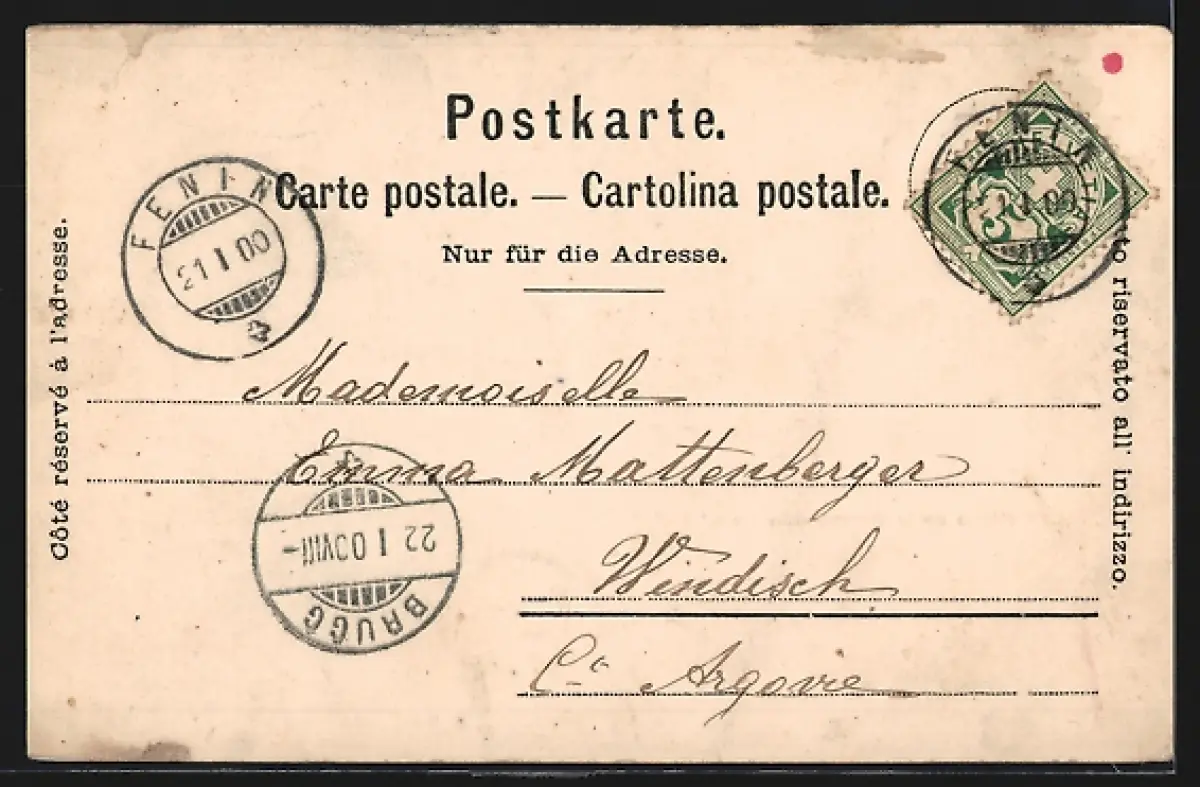 Postkarte.
Carte postale. — Cartolina postale.
Nur für die Adresse.
Côté réservé à l'adresse.
to riservato all' indirizzo.
FENIN
21 I 00
FENIN
I 00
Mademoiselle
Emma Mattenberger
Windisch
Ct. Argovie
22 I 00 VIII-
BRUGG